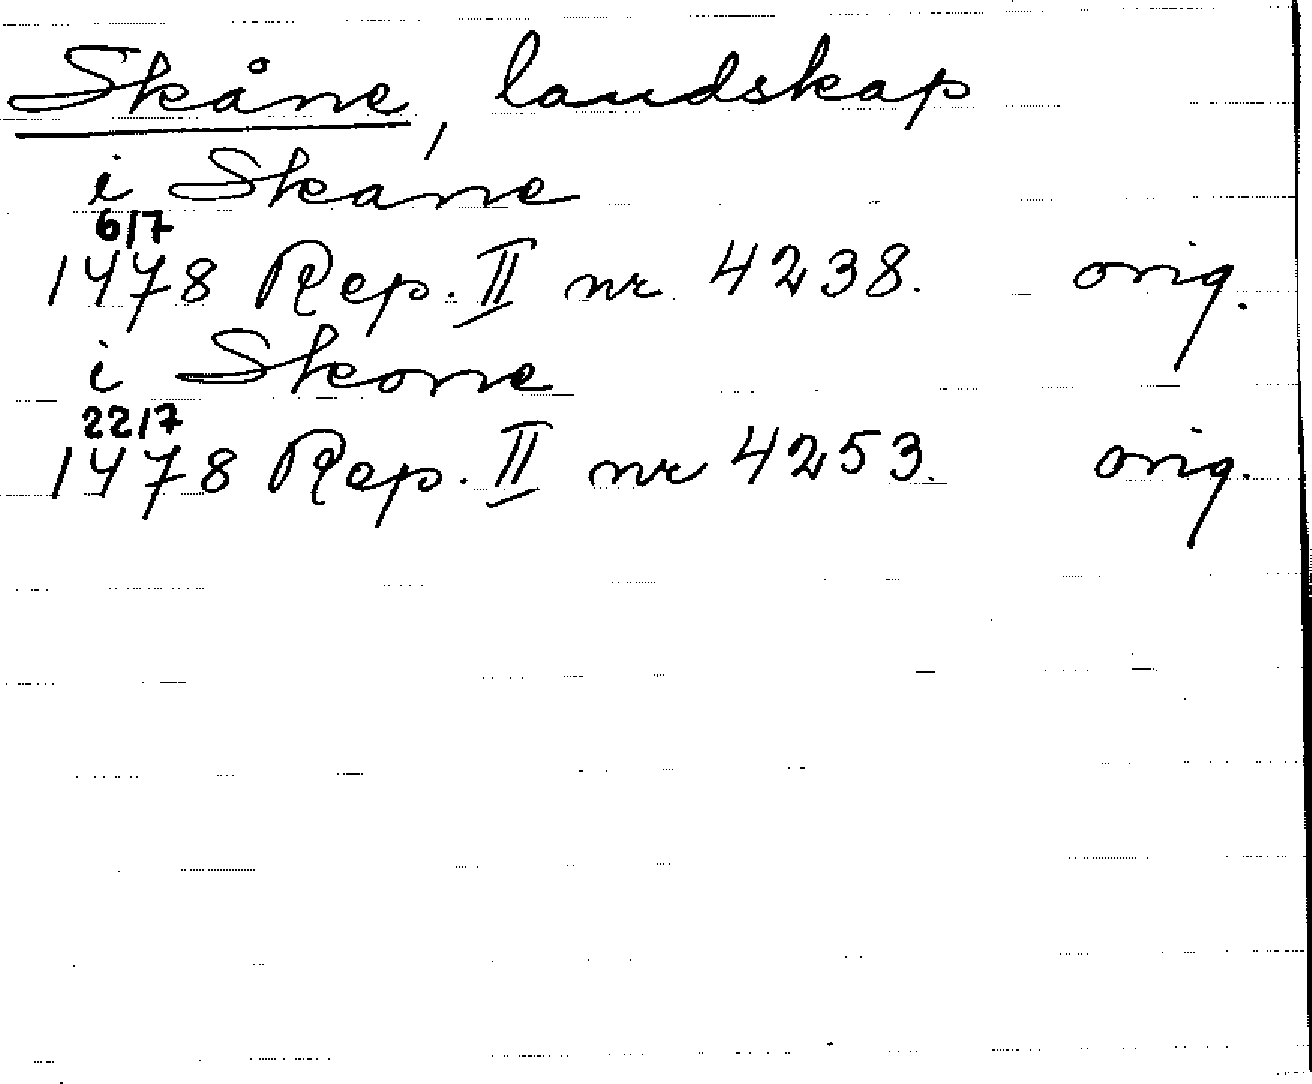 Skåne, landskap
i Skane
6/7
1478 Rep. II nr 4238. orig.
i Skone
22/7
1478 Rep. II nr 4253. orig.